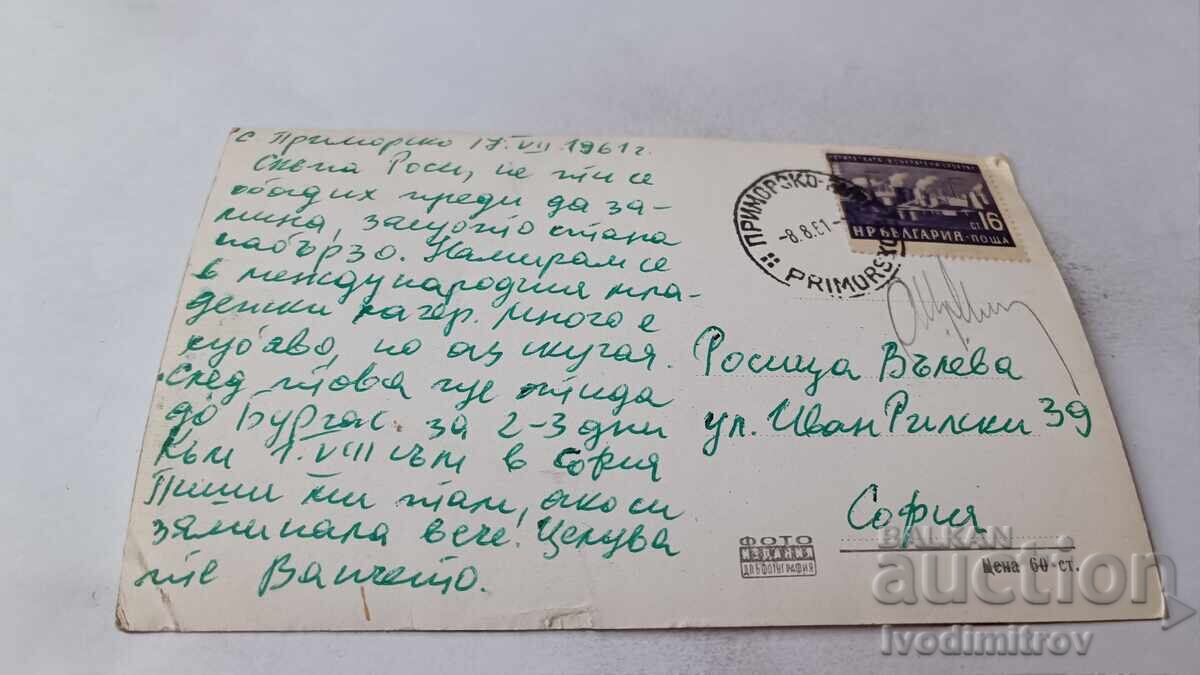 с. Приморско 17.VII 1961 г.
Скъпа Роси, не ти се
обадих преди да за-
мина, защото стана
набързо. Намирам се
в международния мла-
дежки лагер. Много е
хубаво, но аз скучая.
След това ще отида
до Бургас за 2-3 дни
Към 1.VIII съм в София
Пиши ми там, ако си
заминала вече. Целува
те Ванчето.
ПРИМОРСКО
-8.8.61-
PRIMORSKO
СТ. 16
НР БЪЛГАРИЯ·ПОЩА
Росица Вълева
ул. Иван Рилски 39
София
ФОТО
ИЗДАНИЯ
ДП ФОТОГРАФИЯ
Цена 60 ст.
BALKAN
auction
Ivodimitrov